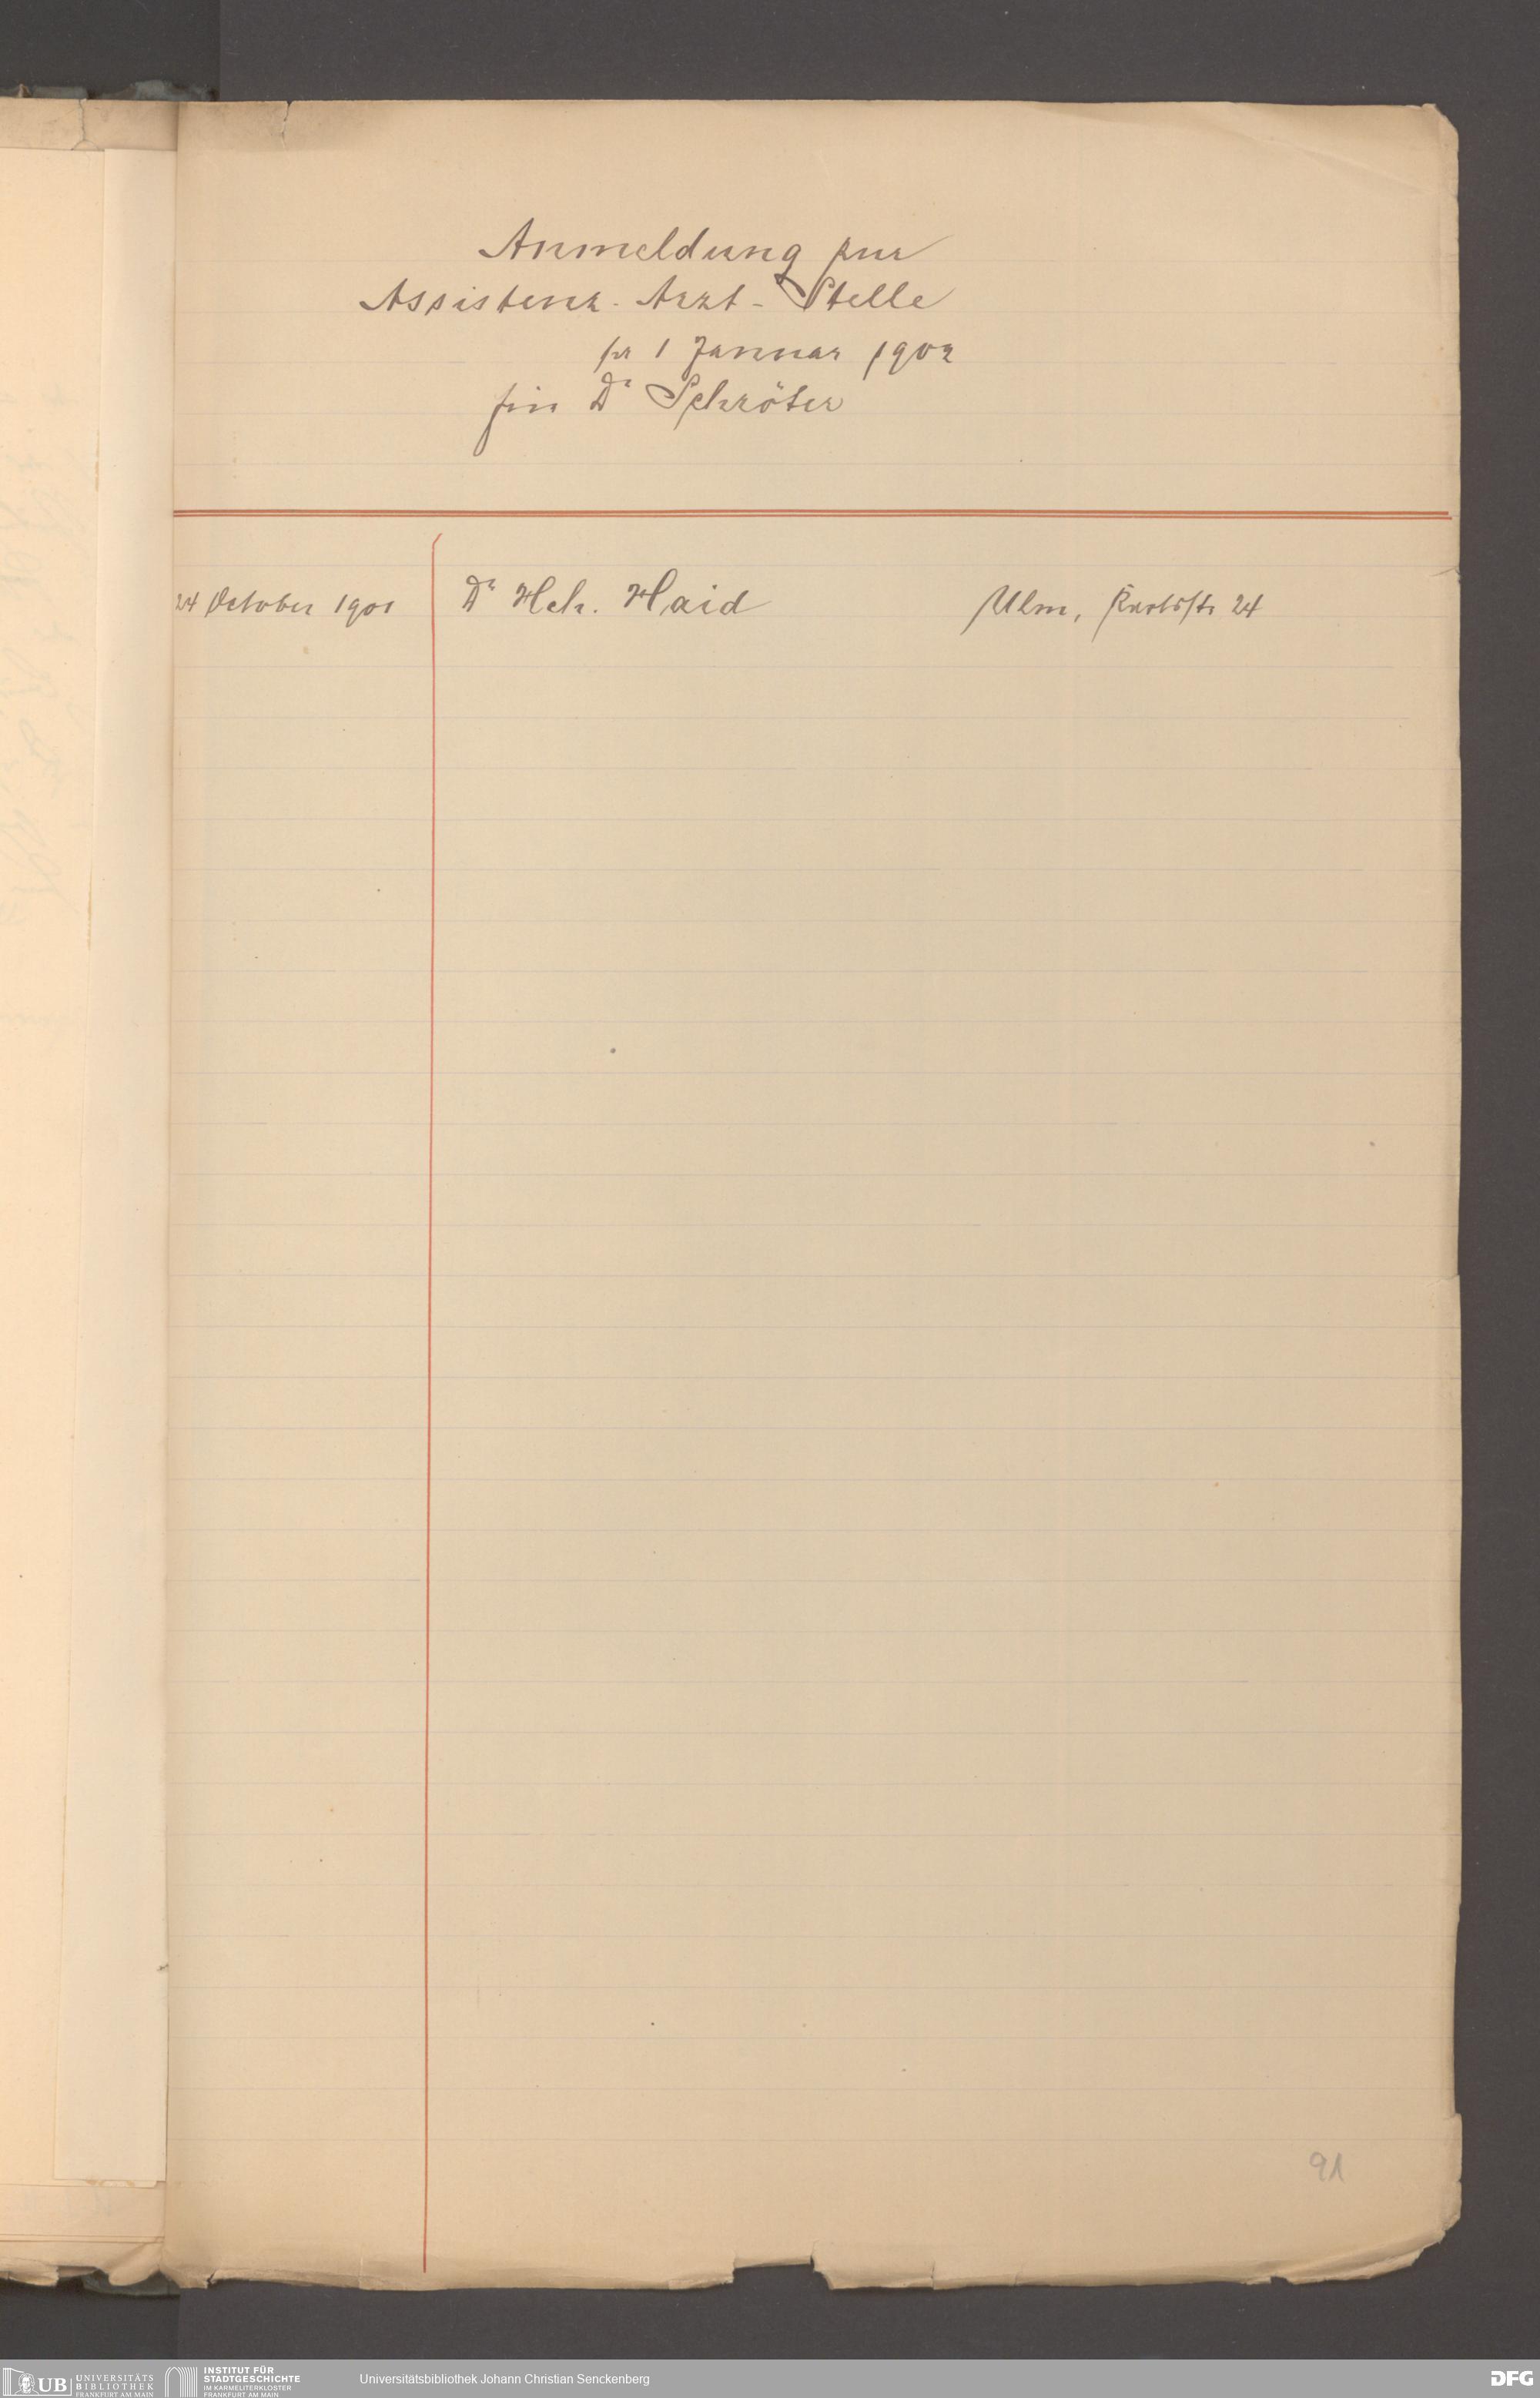 Anmeldung zur
Assistenz-Arzt-Stelle
pr 1 Januar 1902
für Dr Schröter
24 October 1901 Dr Hch. Haid Ulm, Karlsstr 24
91
UB UNIVERSITÄTS
BIBLIOTHEK
FRANKFURT AM MAIN
INSTITUT FÜR
STADTGESCHICHTE
IM KARMELITERKLOSTER
FRANKFURT AM MAIN
Universitätsbibliothek Johann Christian Senckenberg
DFG